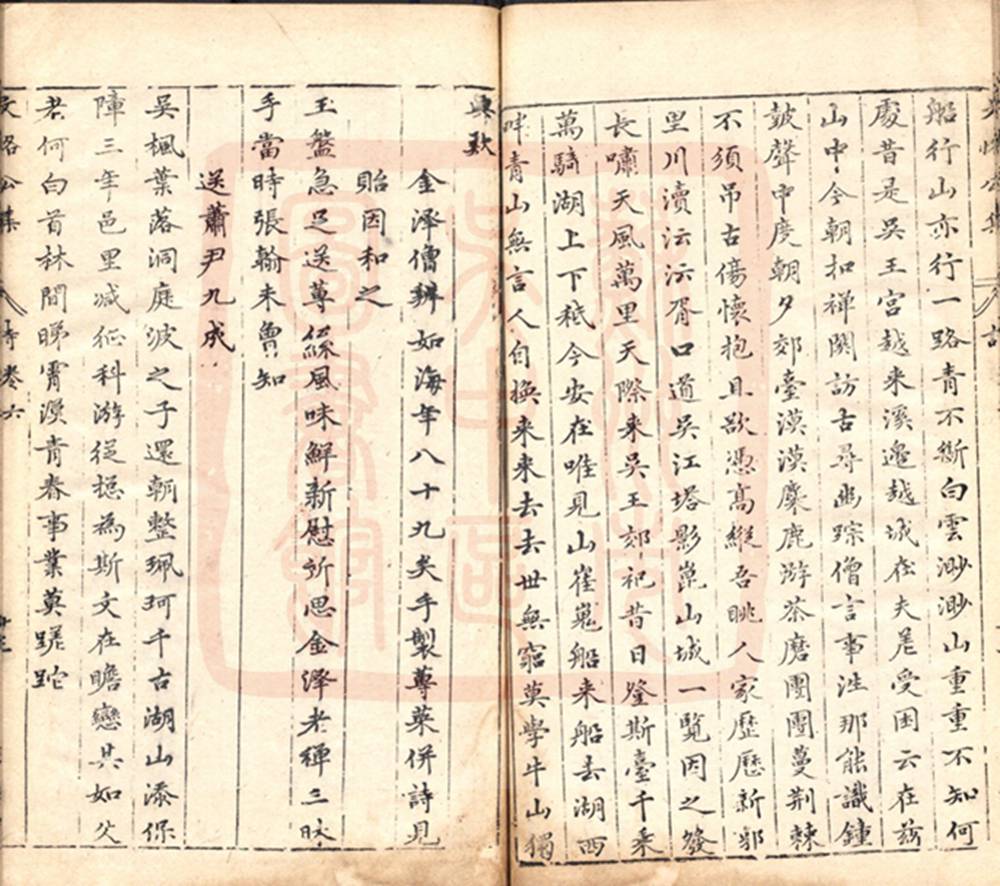 船行山亦行一路青不斷白雲渺渺山重重不知何
處昔是吳王宮越来溪邉越城在夫差受困云在茲
山中今朝扣禅関訪古尋幽踪僧言事泩那能識鍾
皷聲中度朝夕郊臺漠漠麋鹿游茶磨團團蔓荆棘
不須吊古傷懷抱且欲憑髙縱吾眺人家歷歷新郭
里川瀆沄沄胥口道吳江塔影崑山城一覧因之發
長嘯天風萬里天際来吳王郊祀昔日登斯臺千乘
萬騎湖上下秪今安在唯見山崔嵬船来船去湖西
畔青山無言人自換来来去去世無窮莫學牛山獨
興歎
金澤僧辨如海年八十九矣手製蓴菜併詩見
貽因和之
玉盤急足送蓴絲風味鮮新慰所思金澤老禅三昧
手當時張翰未曽知
送蕭尹九成
吳楓葉落洞庭波之子還朝整珮珂千古湖山添保
障三年邑里减征科游從揔為斯文在瞻戀共如父
老何白首林間睇霄漢青春事業莫蹉跎
文恪公集 詩卷六